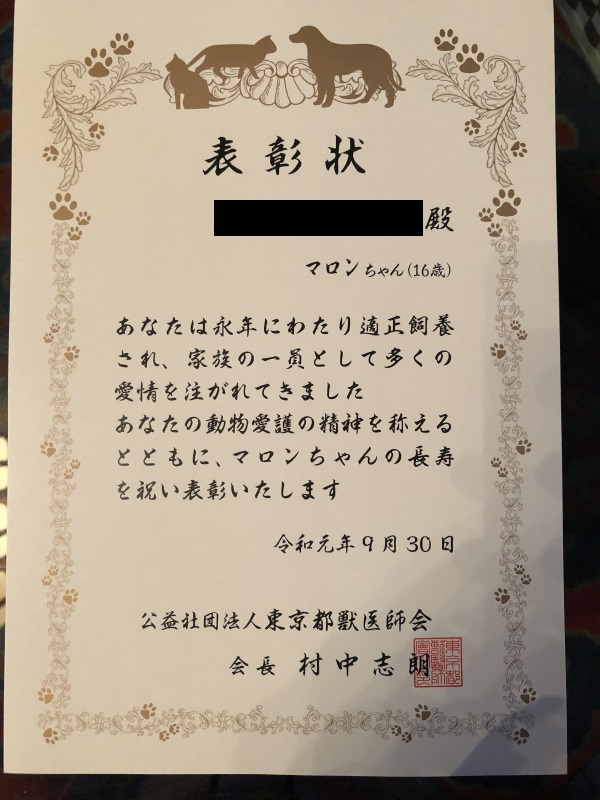 表彰状
殿
マロンちゃん(16歳)
あなたは永年にわたり適正飼養
され、家族の一員として多くの
愛情を注がれてきました
あなたの動物愛護の精神を称える
とともに、マロンちゃんの長寿
を祝い表彰いたします
令和元年9月30日
公益社団法人東京都獣医師会
会長 村中志朗